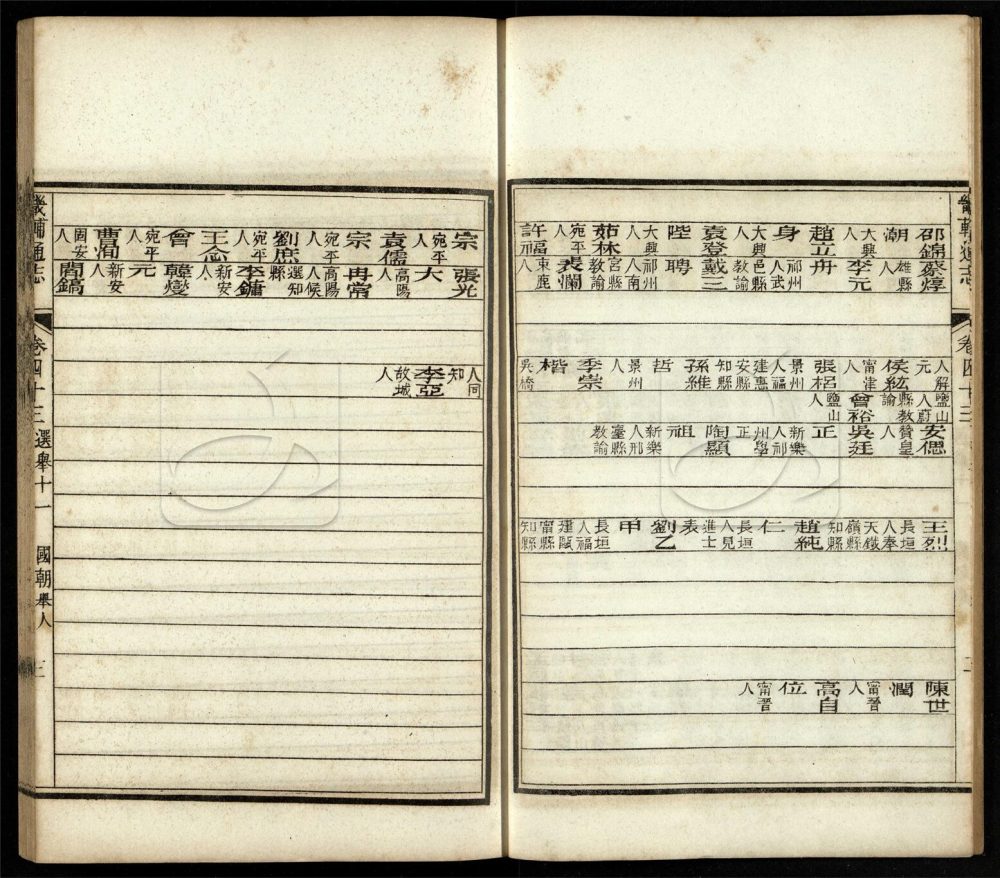 畿輔通志 卷四十三
邵錦潮 大興人 趙立身 大興人 袁登陛 大興人 茹林 宛平人 許福
蔡焞 雄縣人 李元舟 祁州人武邑縣教諭 戴三聘 祁州人南宮縣教諭 裴爛 束鹿人
人解元 侯紘 甯津人 張梠 景州人福建惠安縣知縣 孫維哲 景州人 季崇楷 吳橋
鹽山人蔚縣教諭 曾裕 鹽山人
安偲 贊皇人 吳廷正 新樂人祁州學正 陶顯祖 新樂人邢臺縣教諭
王烈 長垣人奉天鐵嶺縣知縣 趙純仁 長垣人見進士表 劉乙甲 長垣人福建甌甯縣知縣
陳世潤 甯晉人 高自位 甯晉人
宗 宛平人 袁儒宗 宛平人 劉庶 宛平人 王念會 宛平人 曹洵 固安人
張光大 高陽人 冉常 高陽人候選知縣 李鏞 新安人 韓燮元 新安人 閻鎬
人同知 李亞 故城人
畿輔通志 卷四十三 選舉十一 國朝舉人 三